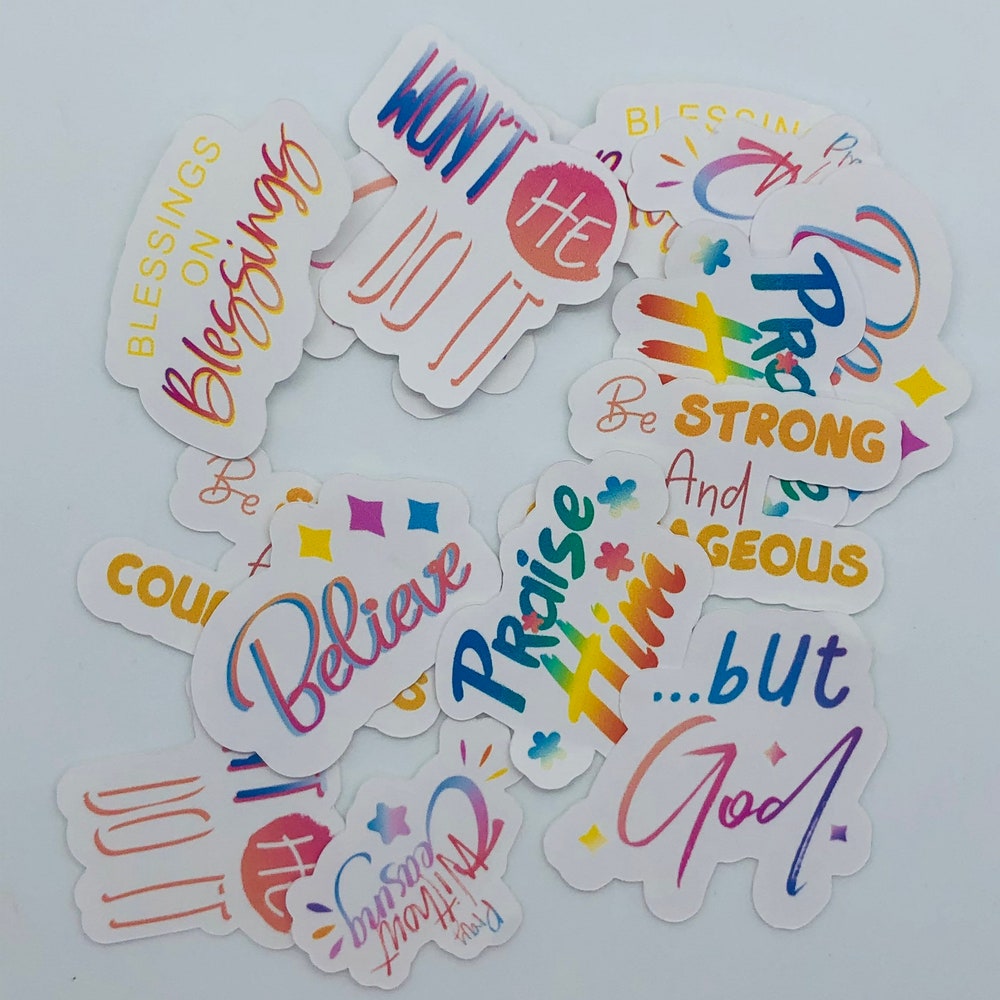 WON'T
HE
DO IT
BLESSINGS
ON
Blessings
BLESSIN
Pr
Be
Pra
H
Be STRONG
And
AGEOUS
Be
COU
Believe
Praise
Him
...but
God
DO IT
HE
Pray
Without
easing